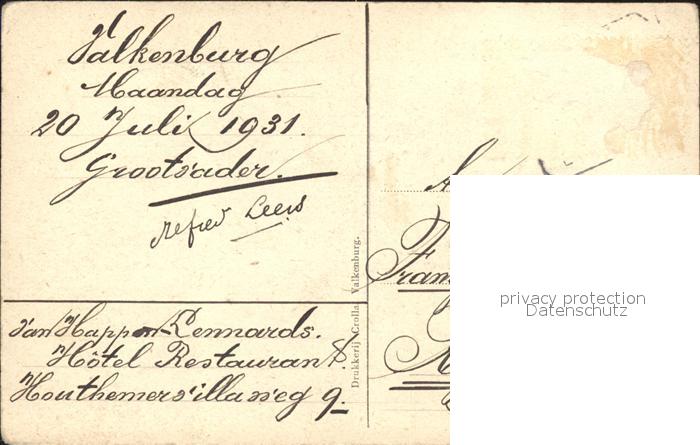 Valkenburg
Maandag
20 Juli 1931.
Grootvader.
Alfred Leers
Van Happen-Lennards.
Hôtel Restaurant.
Houthemervillaweg 9.
Drukkerij Crolla Valkenburg.
privacy protection
Datenschutz